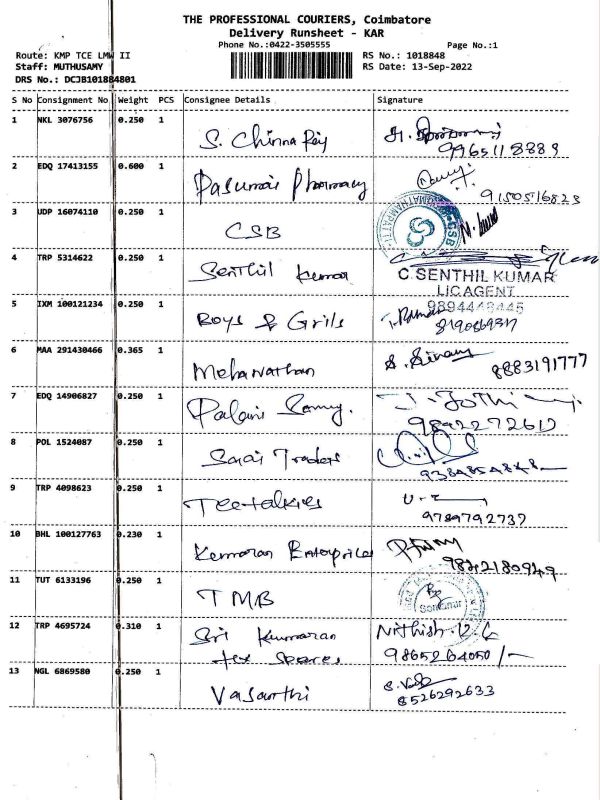 THE PROFESSIONAL COURIERS, Coimbatore
Delivery Runsheet - KAR
Phone No.:0422-3505555 Page No.:1
Route: KMP TCE LMW II RS No.: 1018848
Staff: MUTHUSAMY RS Date: 13-Sep-2022
DRS No.: DCJB101884801
S No Consignment No Weight PCS Consignee Details Signature
1 NKL 3076756 0.250 1
S. Chinna
9965118889
2 EDQ 17413155 0.600 1
Pasumai Pharmacy
9150516823
3 UDP 16074110 0.250 1
CSB
4 TRP 5314622 0.250 1
Senthil Kumar
C. SENTHIL KUMAR
LIC AGENT
9894448445
5 IXM 100121234 0.250 1
Boys & Grils
6 MAA 291430466 0.365 1
Mehanathan
8883191777
7 EDQ 14906827 0.250 1
Palani Samy.
9892272617
8 POL 1524087 0.250 1
Traders
9 TRP 4098623 0.250 1
Teetalkies
9789792737
10 BHL 100127763 0.230 1
Kumaran Enterprices
9842180949
11 TUT 6133196 0.250 1
TMB
12 TRP 4695724 0.310 1
Sri Kumaran Nithish
tex spares 9865264050/-
13 NGL 6869580 0.250 1
Vasanthi
8526292633